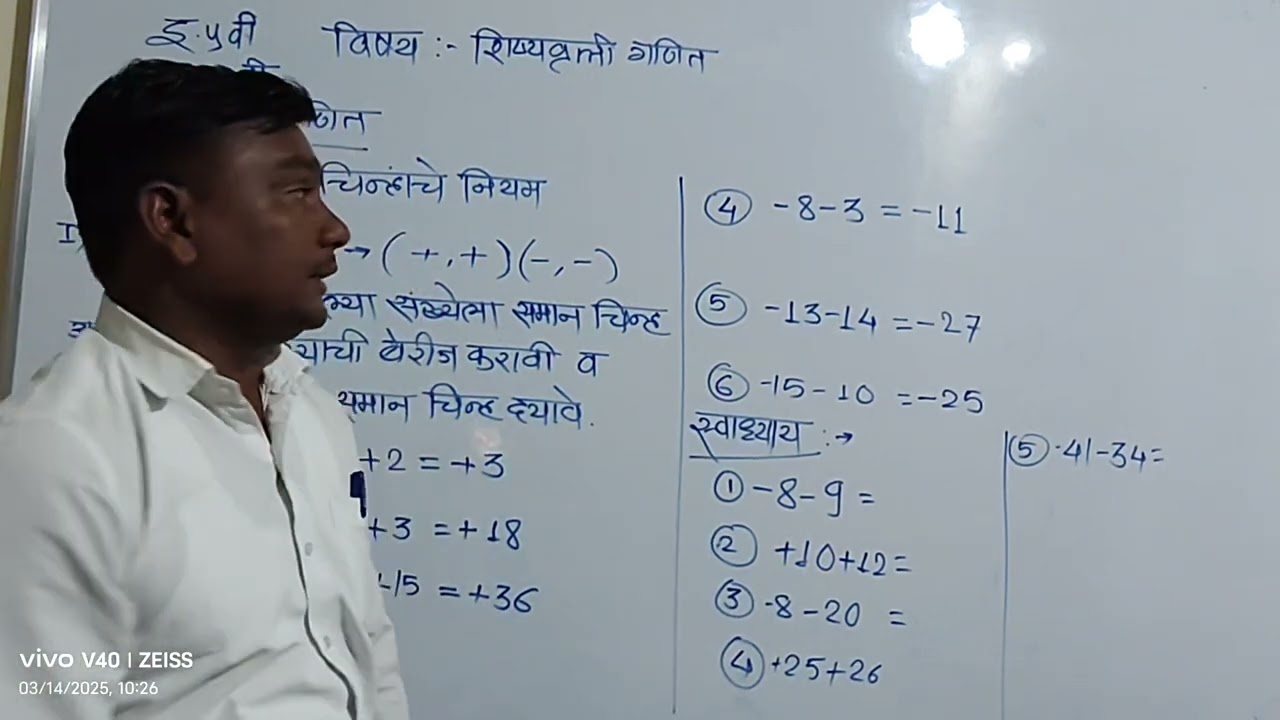 इ.५वी विषय :- शिष्यवृत्ती गणित
चिन्हांचे नियम
→ (+,+)(-,-)
संख्येला समान चिन्ह
बेरीज करावी व
समान चिन्ह द्यावे.
+2 = +3
+3 = +18
+15 = +36
④ -8-3 = -11
⑤ -13-14 = -27
⑥ -15-10 = -25
स्वाध्याय :→
① -8-9 =
② +10+12=
③ -8-20 =
④ +25+26
⑤ -41-34=
vivo V40 | ZEISS
03/14/2025, 10:26